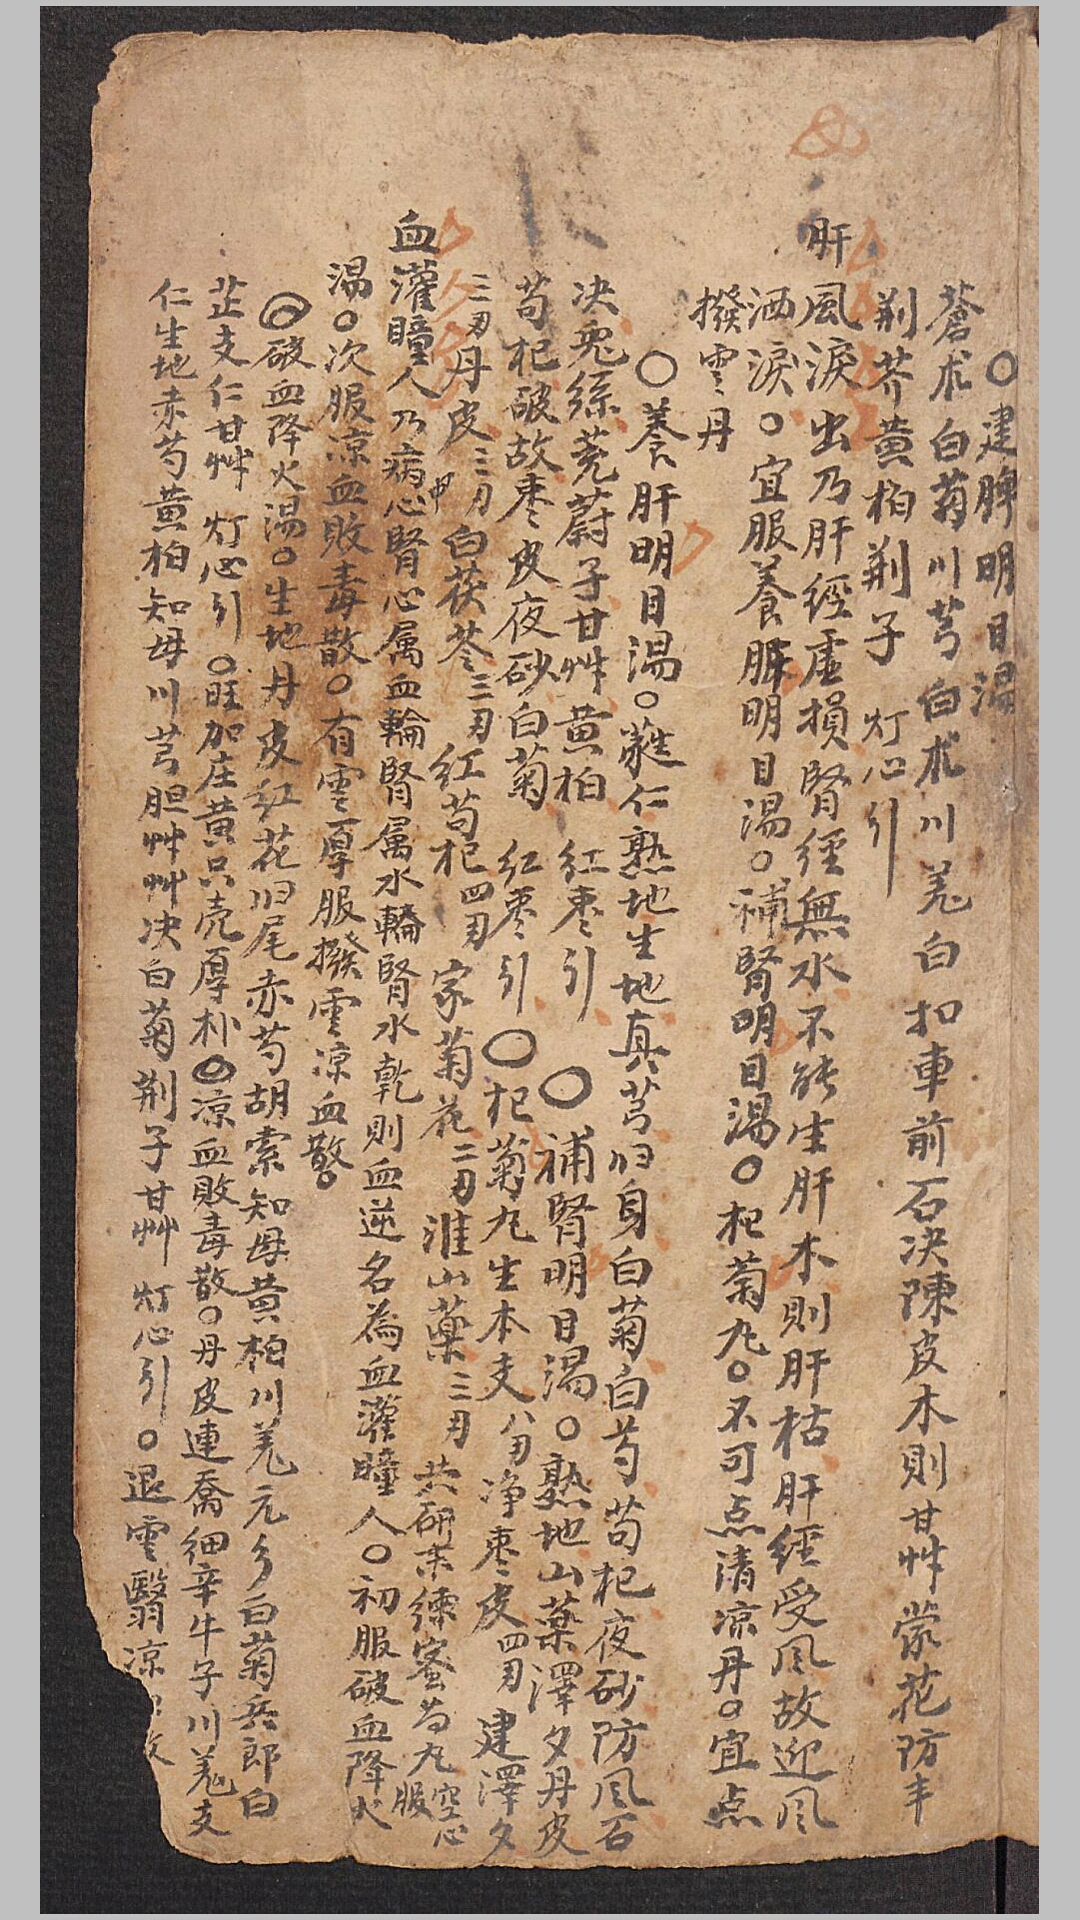 〇建脾明目湯
蒼朮白菊川芎白朮川羌白扣車前石决陳皮木則甘艸蒙花防丰
荆芥黄柏荆子 灯心引
肝風淚出乃肝經虛損腎經無水不能生肝木則肝枯肝經受風故迎風
洒淚〇宜服養脾明目湯〇補腎明目湯〇杞菊丸〇不可点清凉丹〇宜点
撥雲丹
〇養肝明目湯〇蕤仁熟地生地真芎归身白菊白芍苟杞夜砂防風石
决兎絲茺蔚子甘艸黄柏 紅枣引 〇補腎明目湯〇熟地山藥澤夕丹皮
苟杞破故枣皮夜砂白菊 红枣引〇杞菊丸生本支八刄净枣皮四刄 建澤夕
三刄丹皮三刄白茯苓三刄紅苟杞四刄 家菊花二刄淮山藥三刄 共研末練蜜为丸空心服
血灌瞳人乃病心腎心属血輪腎属水輪腎水乾則血逆名為血灌瞳人〇初服破血降火
湯〇次服凉血敗毒散〇有雲厚服撥雲凉血散〇
◎破血降火湯〇生地丹皮红花归尾赤芍胡索知母黄柏川羌元参白菊兵郎白
芷支仁甘艸 灯心引〇旺加庄黄只壳厚朴◎凉血敗毒散〇丹皮連喬细辛牛子川羌支
仁生地赤芍黄柏知母川芎胆艸艸决白菊荆子甘艸 灯心引〇退雲翳凉